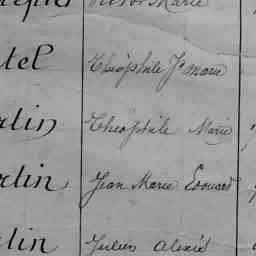 Victor Marie
tel Théophile Jn marie
rtin Théophile Marie
rtin Jean Marie Edouard
tin Julien Alexis